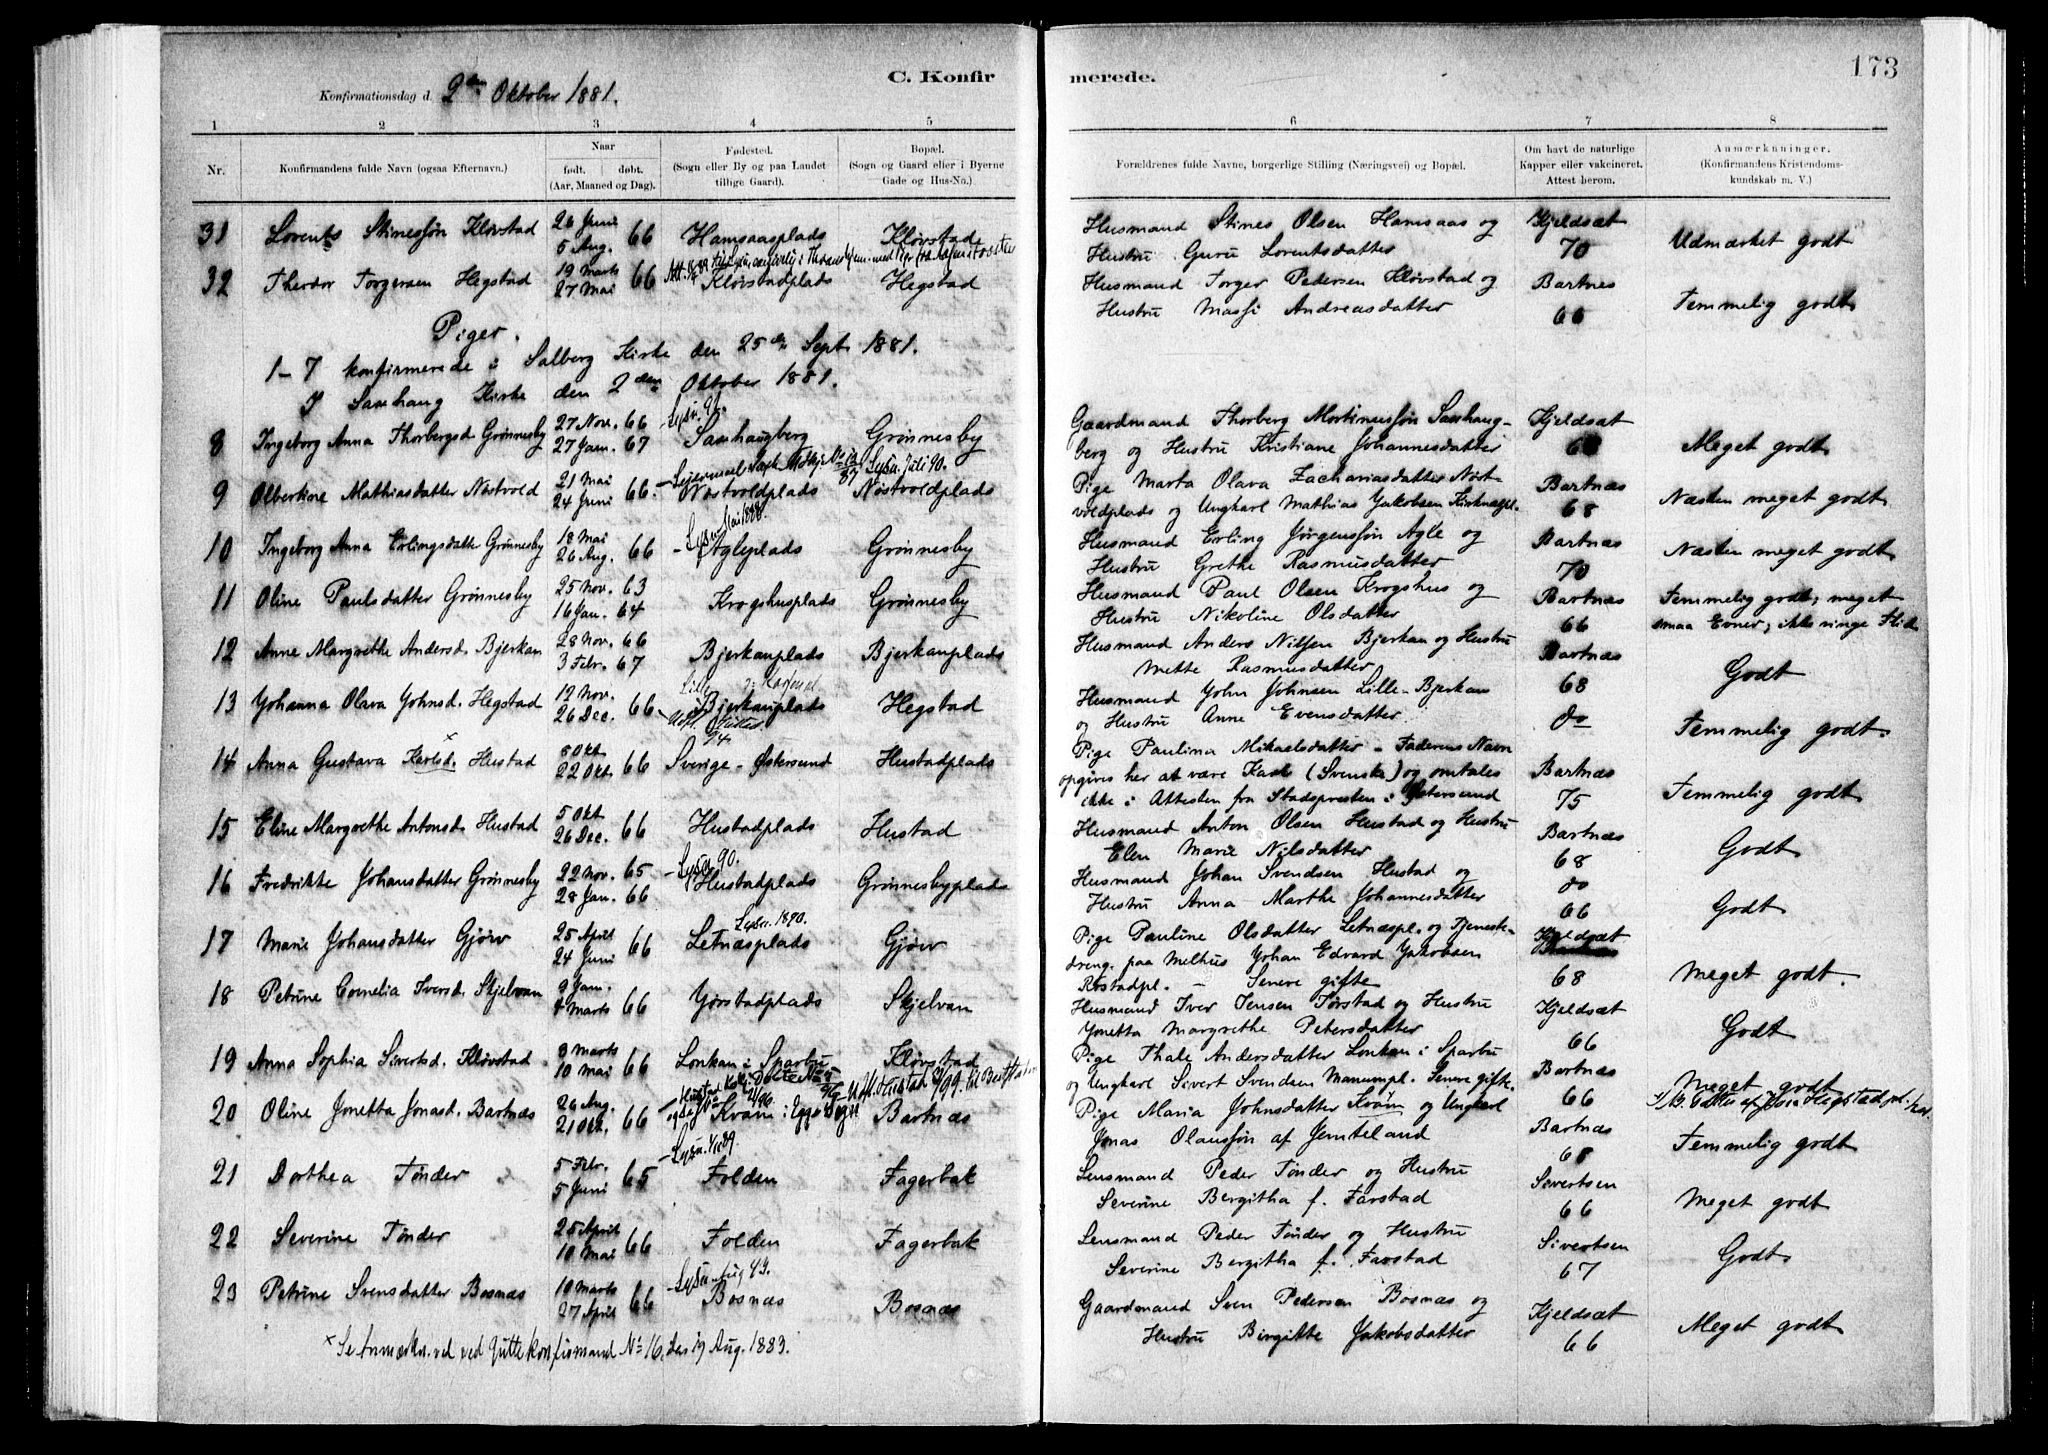 C. Konfirmerede.
173
Konfirmationsdag d. 2den Oktober 1881.
1 2 3 4 5 6 7 8
Nr. Konfirmandens fulde Navn (ogsaa Efternavn.) Naar født. døbt. (Aar, Maaned og Dag). Fødested. (Sogn eller By og paa Landet tillige Gaard). Bopæl. (Sogn og Gaard eller i Byerne Gade og Hus-No.) Forældrenes fulde Navne, borgerlige Stilling (Næringsvei) og Bopæl. Om havt de naturlige Kapper eller vakcineret. Attest herom. Anmærkninger. (Konfirmandens Kristendomskundskab m. V.)
31 Lorents Stinessøn Kløvstad 26 Juni 5 Aug. 66 Hamsaasplads Kløvstad Husmand Stines Olsen Hamsaas og Hustru Guru Lorentsdatter Kjeldsæt 70 Udmærket godt
32 Theodor Torgersen Hegstad 19 Marts 27 Mai 66 Kløvstadplads Hegstad Husmand Torger Pedersen Kløvstad og Hustru Massi Andreasdatter Bartnes 66 Temmelig godt
Piger.
1-7 konfirmerede i Salberg Kirke den 25de Sept. 1881.
I Saxhaug Kirke den 2den Oktober 1881.
8 Ingeborg Anna Thorbergsd. Grønnesby 27 Nov. 66 27 Jan. 67 Lysn. 91. Saxhaugberg Grønnesby Gaardmand Thorberg Mortinussøn Saxhaugberg og Hustru Kristiane Johannesdatter Kjeldsæt Meget godt
9 Olbertine Mathiasdatter Nøstvold 21 Mai 24 Juni 66. Nøstvoldplads Lysn. Juli 90. Nøstvoldplads Pige Marta Olava Zachariasdatter Nøstvoldplads og Ungkarl Mathias Jakobsen Bartnæs 68 Næsten meget godt
10 Ingeborg Anna Erlingsdatter Grønnesby 18 Mai 26 Aug. 66 Lysn. Mai 1888. Agleplads Grønnesby Husmand Erling Jørgenssøn Agle og Hustru Grethe Rasmusdatter Bartnæs 70 Næsten meget godt
11 Oline Paulsdatter Grønnesby 25 Nov. 63 16 Jan. 64 Krogshusplads Grønnesby Husmand Paul Olsen Krogshus og Hustru Nikoline Olsdatter Bartnæs 66 Temmelig godt, meget smaa Evner, ikke ringe Flid
12 Anne Margrethe Andersd. Bjerkan 28 Nov. 66 3 Febr. 67 Bjerkanplads Bjerkanplads Husmand Anders Nilsen Bjerkan og Hustru Mette Rasmusdatter Bartnæs 68 Godt
13 Johanna Olava Johnsd. Hegstad 12 Nov. 26 Dec. 66 Lille Bjerkanplads Hegstad Husmand John Johnsen Lille-Bjerkan og Hustru Anne Evensdatter do Temmelig godt.
14 Anna Gustava Karlsd. x Hustad 8 Okt 22 Okt. 66 Sverige - Østersund Hustadplads Pige Paulina Mikaelsdatter - Faderens Navn opgives her at være Karl (Svensk) og omtales ikke i Attesten fra Stadspresten i Østersund Bartnæs 75 Temmelig godt
15 Eline Margrethe Antonsd. Hustad 5 Okt 26 Dec. 66 Hustadplads Hustad Husmand Anton Olsen Hustad og Hustru Elen Marie Nilsdatter Bartnæs 68 Godt
16 Fredrikke Johansdatter Grønnesby 22 Nov. 65 28 Jan. 66 Lysn. 90. Hustadplads Grønnesbyplads Husmand Johan Svendsen Hustad og Hustru Anna Marthe Johannesdatter do 66 Godt
17 Marie Johansdatter Gjørv 25 April 24 Juni 66 Lysn. 1890. Letnæsplads Gjørv Pige Pauline Olsdatter Letnæspl. og Tjenestedreng paa Melhus Johan Edvard Jakobsen Røstadpl. - Senere gifte Kjeldsæt 68 Meget godt.
18 Petrine Cornelia Iversd. Skjelvan 9 Jan. Marts 66 Jørstadplads Skjelvan Husmand Iver Jensen Jørstad og Hustru Jonetta Margrethe Petersdatter Kjeldsæt 66 Godt
19 Anna Sophia Sivertsd. Kløvstad 8 Marts 10 Mai 66 Lonkan i Sparbu Kløvstad Pige Thale Andersdatter Lonkan i Sparbu og Ungkarl Sivert Svendsen Manumpl. Senere gifte. Bartnæs 66 Meget godt
20 Oline Jonetta Jonasd. Bartnæs 26 Aug. 21 Okt. 66 Kvam i Egge Bartnæs Pige Maria Johnsdatter Kvam og Ungkarl Jonas Olaussøn af Jemteland Bartnæs 68 Temmelig godt
21 Dorthea Tønder 5 Febr. 5 Juni 65 Folden Fagerbak Lensmand Peder Tønder og Hustru Severine Bergitha f. Farstad Sivertsen 66 Meget godt
22 Severine Tønder 25 April 10 Mai 66 Folden Fagerbak Lensmand Peder Tønder og Hustru Severine Bergitha f. Farstad Sivertsen 67 Godt
23 Petrine Svensdatter Bosnæs 10 Marts 27 April 66 Bosnæs Bosnæs Gaardmand Sven Pedersen Bosnæs og Hustru Birgitte Jakobsdatter Kjeldsæt 66 Meget godt
x Se Anmærkn. ved Guttekonfirmand No 16, Aug. 1883.